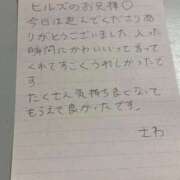 ヒルズのお兄様♡
今日は遊んでくださりあ
りがとうございました。入った
瞬間にかわいいって言って
くれてすごくうれしかったで
す。
たくさん気持ち良くなって
もらえて良かったです。
さわ